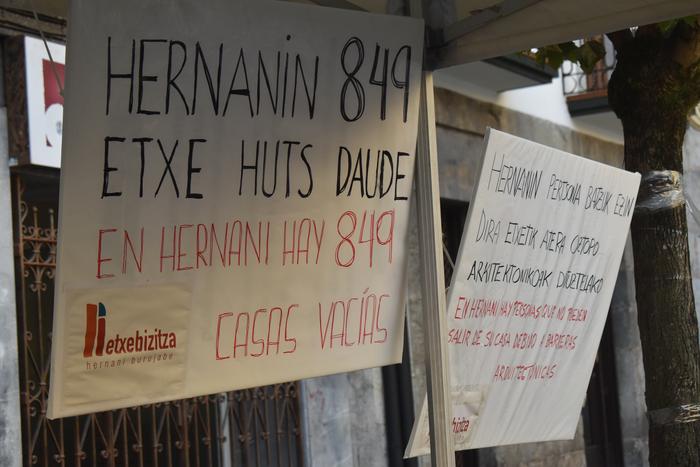 HERNANIN 849
ETXE HUTS DAUDE
EN HERNANI HAY 849
CASAS VACÍAS
etxebizitza
hernani burujabe
HERNANIN PERTSONA BATZUK EZIN
DIRA ETXETIK ATERA OZTOPO
ARKITEKTONIKOAK DITUZTELAKO
EN HERNANI HAY PERSONAS QUE NO PUEDEN
SALIR DE SU CASA DEBIDO A BARRERAS
ARQUITECTÓNICAS
bizitza